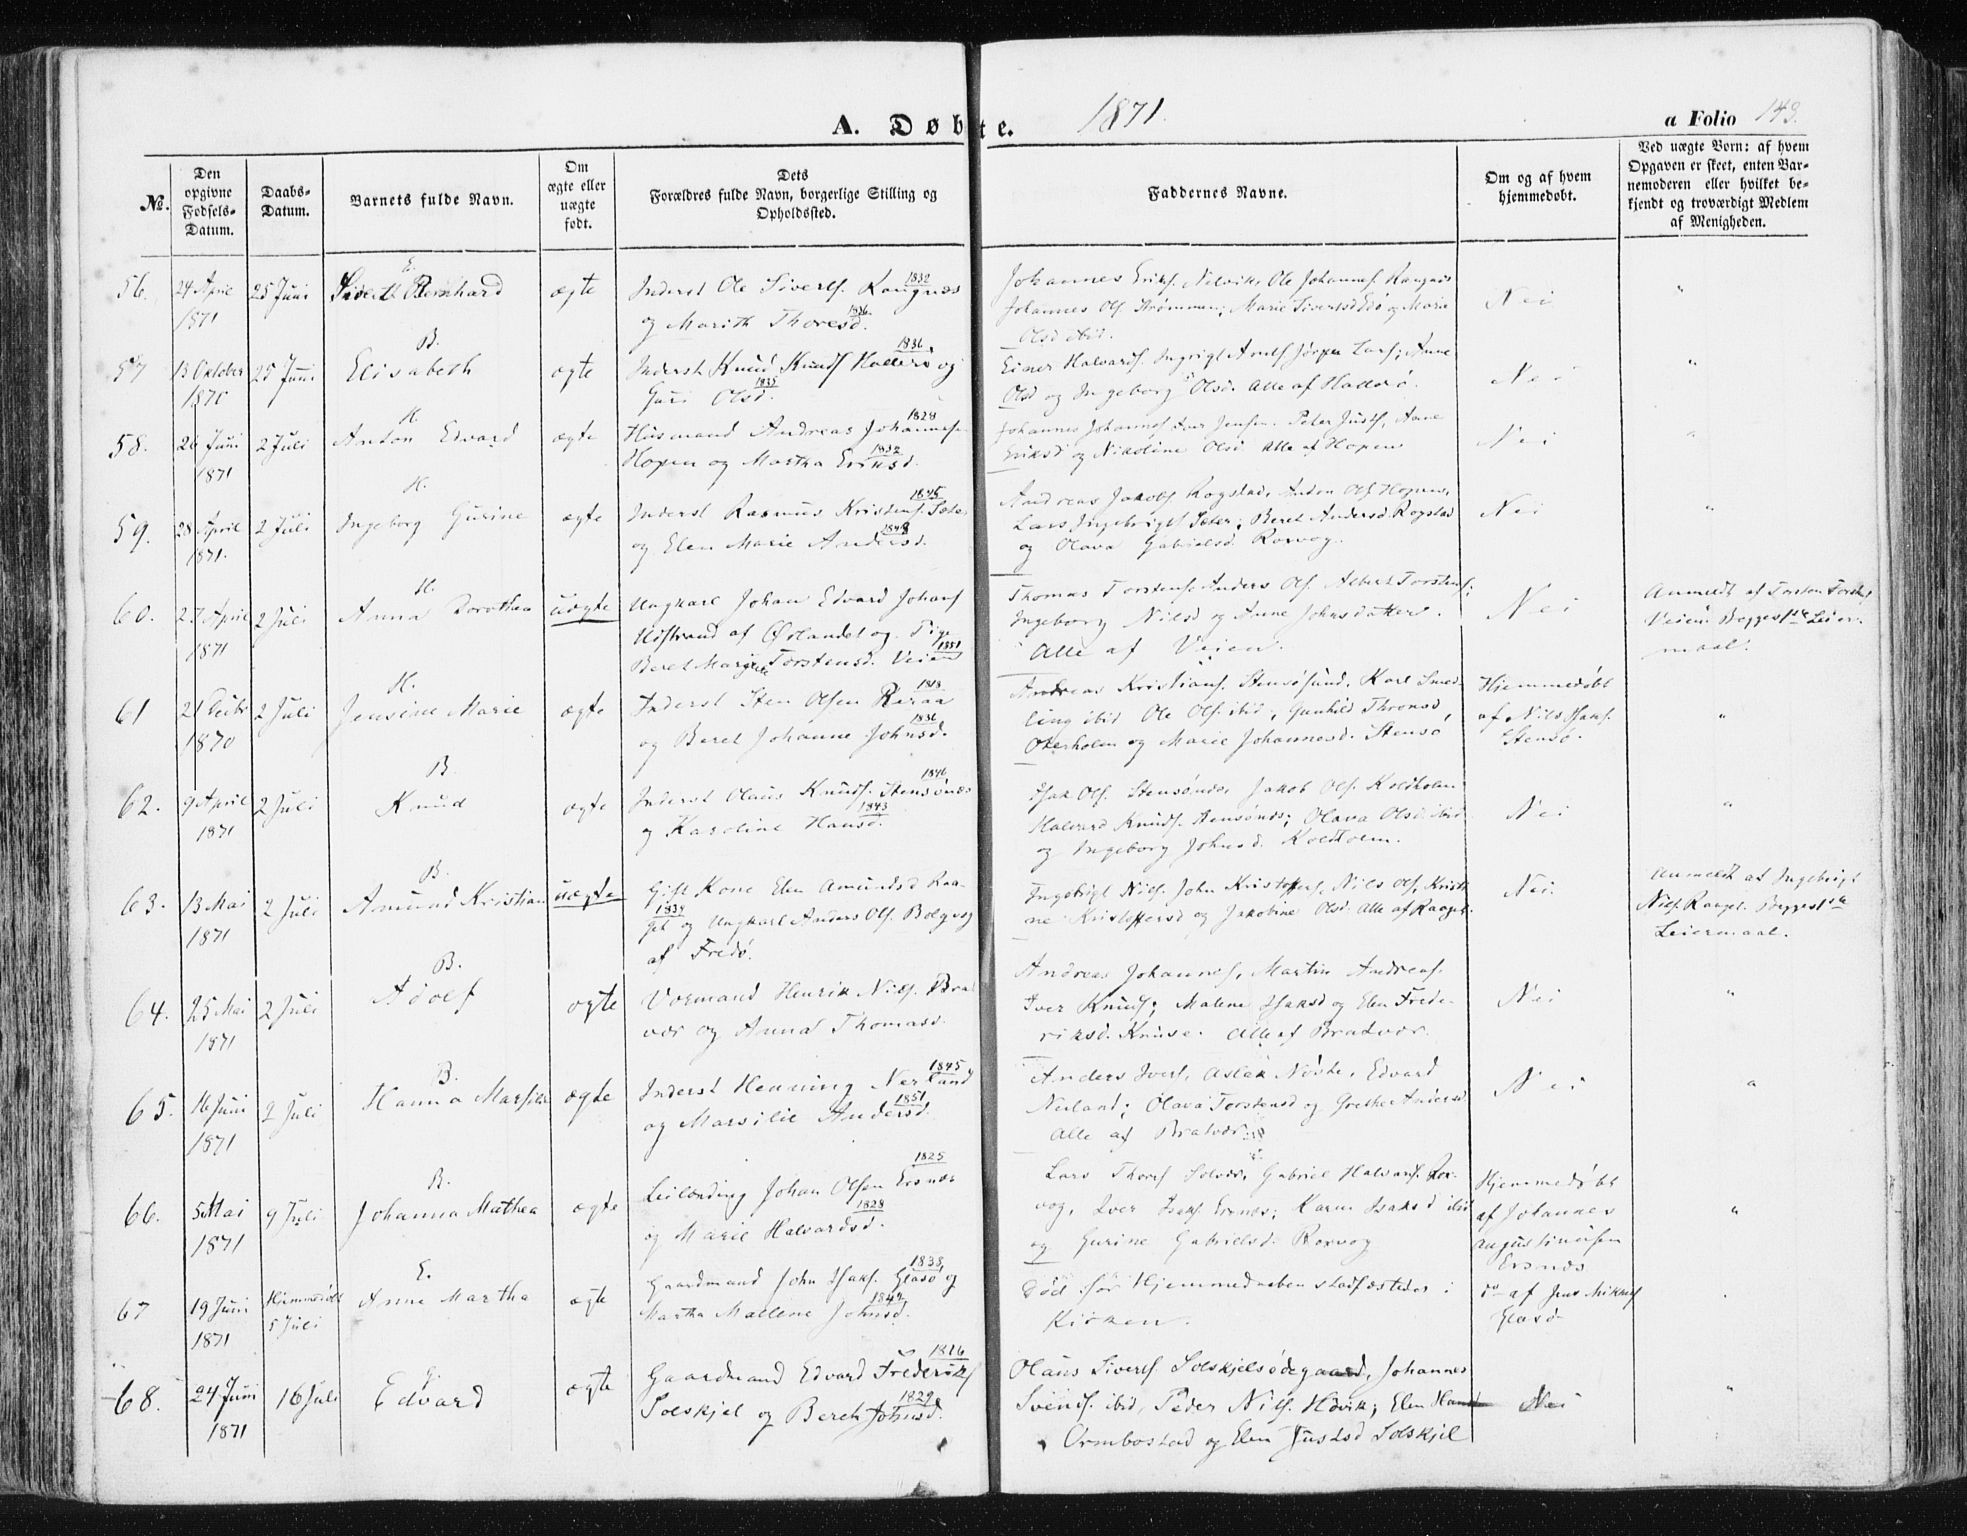 A. Døbte. 1871. a Folio 143.
No.
Den opgivne Fødsels-Datum.
Daabs-Datum.
Barnets fulde Navn.
Om ægte eller uægte født.
Dets Forældres fulde Navn, borgerlige Stilling og Opholdssted.
Faddernes Navne.
Om og af hvem hjemmedøbt.
Ved uægte Børn: af hvem Opgaven er skeet, enten Barnemoderen eller hvilket bekjendt og troværdigt Medlem af Menigheden.
56. 24 April 1871 25 Juni E. Bernhard ægte
Inderst Ole Siverts. 1832
og Marith Thoresd. 1836.
Johannes Eriks. Ole Johannes.
Johannes Ols. Strømmen; Marie og Maria
Olsd ibid.
Nei "
57 13 Oktober 1870 25 Juni B. Elisabeth ægte
Inderst Knud Knuds. Hallerø og 1836
Guri Olsd. 1835
Einer Halvards. Lars; Anne
Olsd og Ingeborg Olsd. Alle af Hallerø.
Nei "
58. 26 Juni 1871 2 Juli H. Anton Edvard ægte
Husmand Andreas Johannesen 1828
Hopen og Martha Eriksd. 1832
Johannes Johannes. Jensen. Peter Justs, Anne
Eriksd og Nikoline Olsd. Alle af Hopen
Nei "
59. 28 April 1871. 2 Juli H. Ingeborg Gurine ægte
Inderst Rasmus Kristens. Sæter 1845
og Elen Marie Andersd. 1848
Andreas Jakobs Rogstad, Anton Ols. Hopen,
Lars Ingebrigts Sæter; Beret Andersd. Rogstad
og Olava Gabrielsd. Roxvog.
Nei "
60. 27 April 1871 2 Juli H. Anna Dorothea uægte
Ungkarl Johan Edvard Johans
Uthstrand af Ørlandet og Pige
Beret Margrete Torstensd. Veien 1851
Thomas Torstens. Anders Ols. Albert Torstens;
Ingeborg Nilsd og Anne Johnsdatter.
Alle af Veien.
Nei
Anmeldt af Torsten Torstens
Veien. Begges 1ste Leier-
maal.
61 21 1870 2 Juli H. Jensine Marie ægte
Inderst Sten Olsen
og Beret Johanne Johnsd. 1836
Andreas Kristians. Stensøsund, Karl Smed-
ling ibid Ole Ols. ibid, Gunhild Thronsd,
Oterholm og Marie Johannesd. Stensø
Hjemmedøbt
af Nils Isaks.
Stensø.
"
62. 9 April 1871 2 Juli B. Knud ægte
Inderst Olaus Knuds. Stensønes 1846
og Karoline Hansd. 1843
Isak Ols. Stensønes, Jakob Ols. Koldholm
Halvard Knuds. Stensønes; Olava Olsd. ibid
og Ingeborg Johnsd. Koldholm.
Nei "
63. 13 Mai 1871 2 Juli B. Amund Kristian uægte
Gift Kone Elen Amundsd Raa-
get og Ungkarl Anders Ols. Bolgvog 1839
af Fredø.
Ingebrigt Nils. John Kristoffers, Nils Ols, Kristi-
ne Kristoffersd og Jakobine Olsd. Alle af Raaget.
Nei.
Anmeldt af Ingebrigt
Nils. Raaget. Begges 1ste
Leiermaal.
64. 25 Mai 1871 2 Juli B. Adolf ægte
Vormand Henrik Nils. Brat
vær og Anna Thomasd.
Andreas Johannes, Martin Andreas.
Iver Knuds; Malene Isaksd og Elen Frede-
riksd. Knuse. Alle af Bratvær.
Nei "
65. 16 Juni 1871 2 Juli B. Hanna Marsilie ægte
Inderst Henning Nerland 1845
og Marsilie Andersd. 1851
Anders Ivers, Aslak Nøste, Edvard
Nerland; Olava Torstensd og Grethe Andersd
Alle af Bratvær.
Nei "
66. 5 Mai 1871 9 Juli B. Johanna Mathea ægte
Leilænding Johan Olsen Ersnes 1825
og Marie Halvardsd. 1828
Lars Thors Solvær, Gabriel Halvars. Rox-
vog, Iver Isaks Ersnes; Karen Isaksd ibid
og Gurine Gabrielsd. Roxvog
Hjemmedøbt
af Johannes
Augustinusen
Ersnes
"
67 19 Juni 1871 Hjemmedøbt 5 Juli E. Anne Martha ægte
Gaardmand John Isaks. Glasø og 1838
Martha Mallene Johnsd. 1842
Død før Hjemmedaaben stadfæstedes i
Kirken.
do af Jens Mikkels
Glasø
68. 24 Juni 1871 16 Juli E. Edvard ægte
Gaardmand Edvard Frederiks 1826
Solskjel og Bereth Johnsd. 1829
Olaus Siverts. Solskjelsødegaard, Johannes
Svends. ibid, Peder Nils. Hovik; Elen
Ormbostad og Elen Justsd Solskjel
Nei "